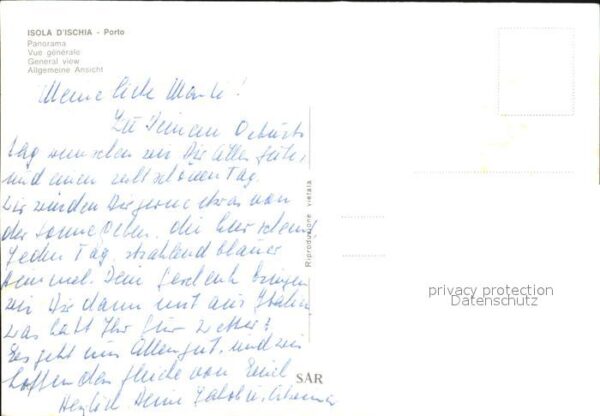 ISOLA D'ISCHIA - Porto
Panorama
Vue générale
General view
Allgemeine Ansicht
Meine liebe !
Zu Deinem Geburts
tag wünschen wir Dir alles Gute,
und einen schönen Tag.
Wir würden Dir gerne etwas von
der Sonne geben, die hier scheint
jeden Tag, strahlend blauer
Himmel. Dein Geschenk bringen
wir Dir dann mit aus Italien
Was habt Ihr für Wetter?
Es geht uns allen gut, und wir
hoffen das gleiche von Euch
Herzlich Deine
Riproduzione vietata
SAR
privacy protection
Datenschutz